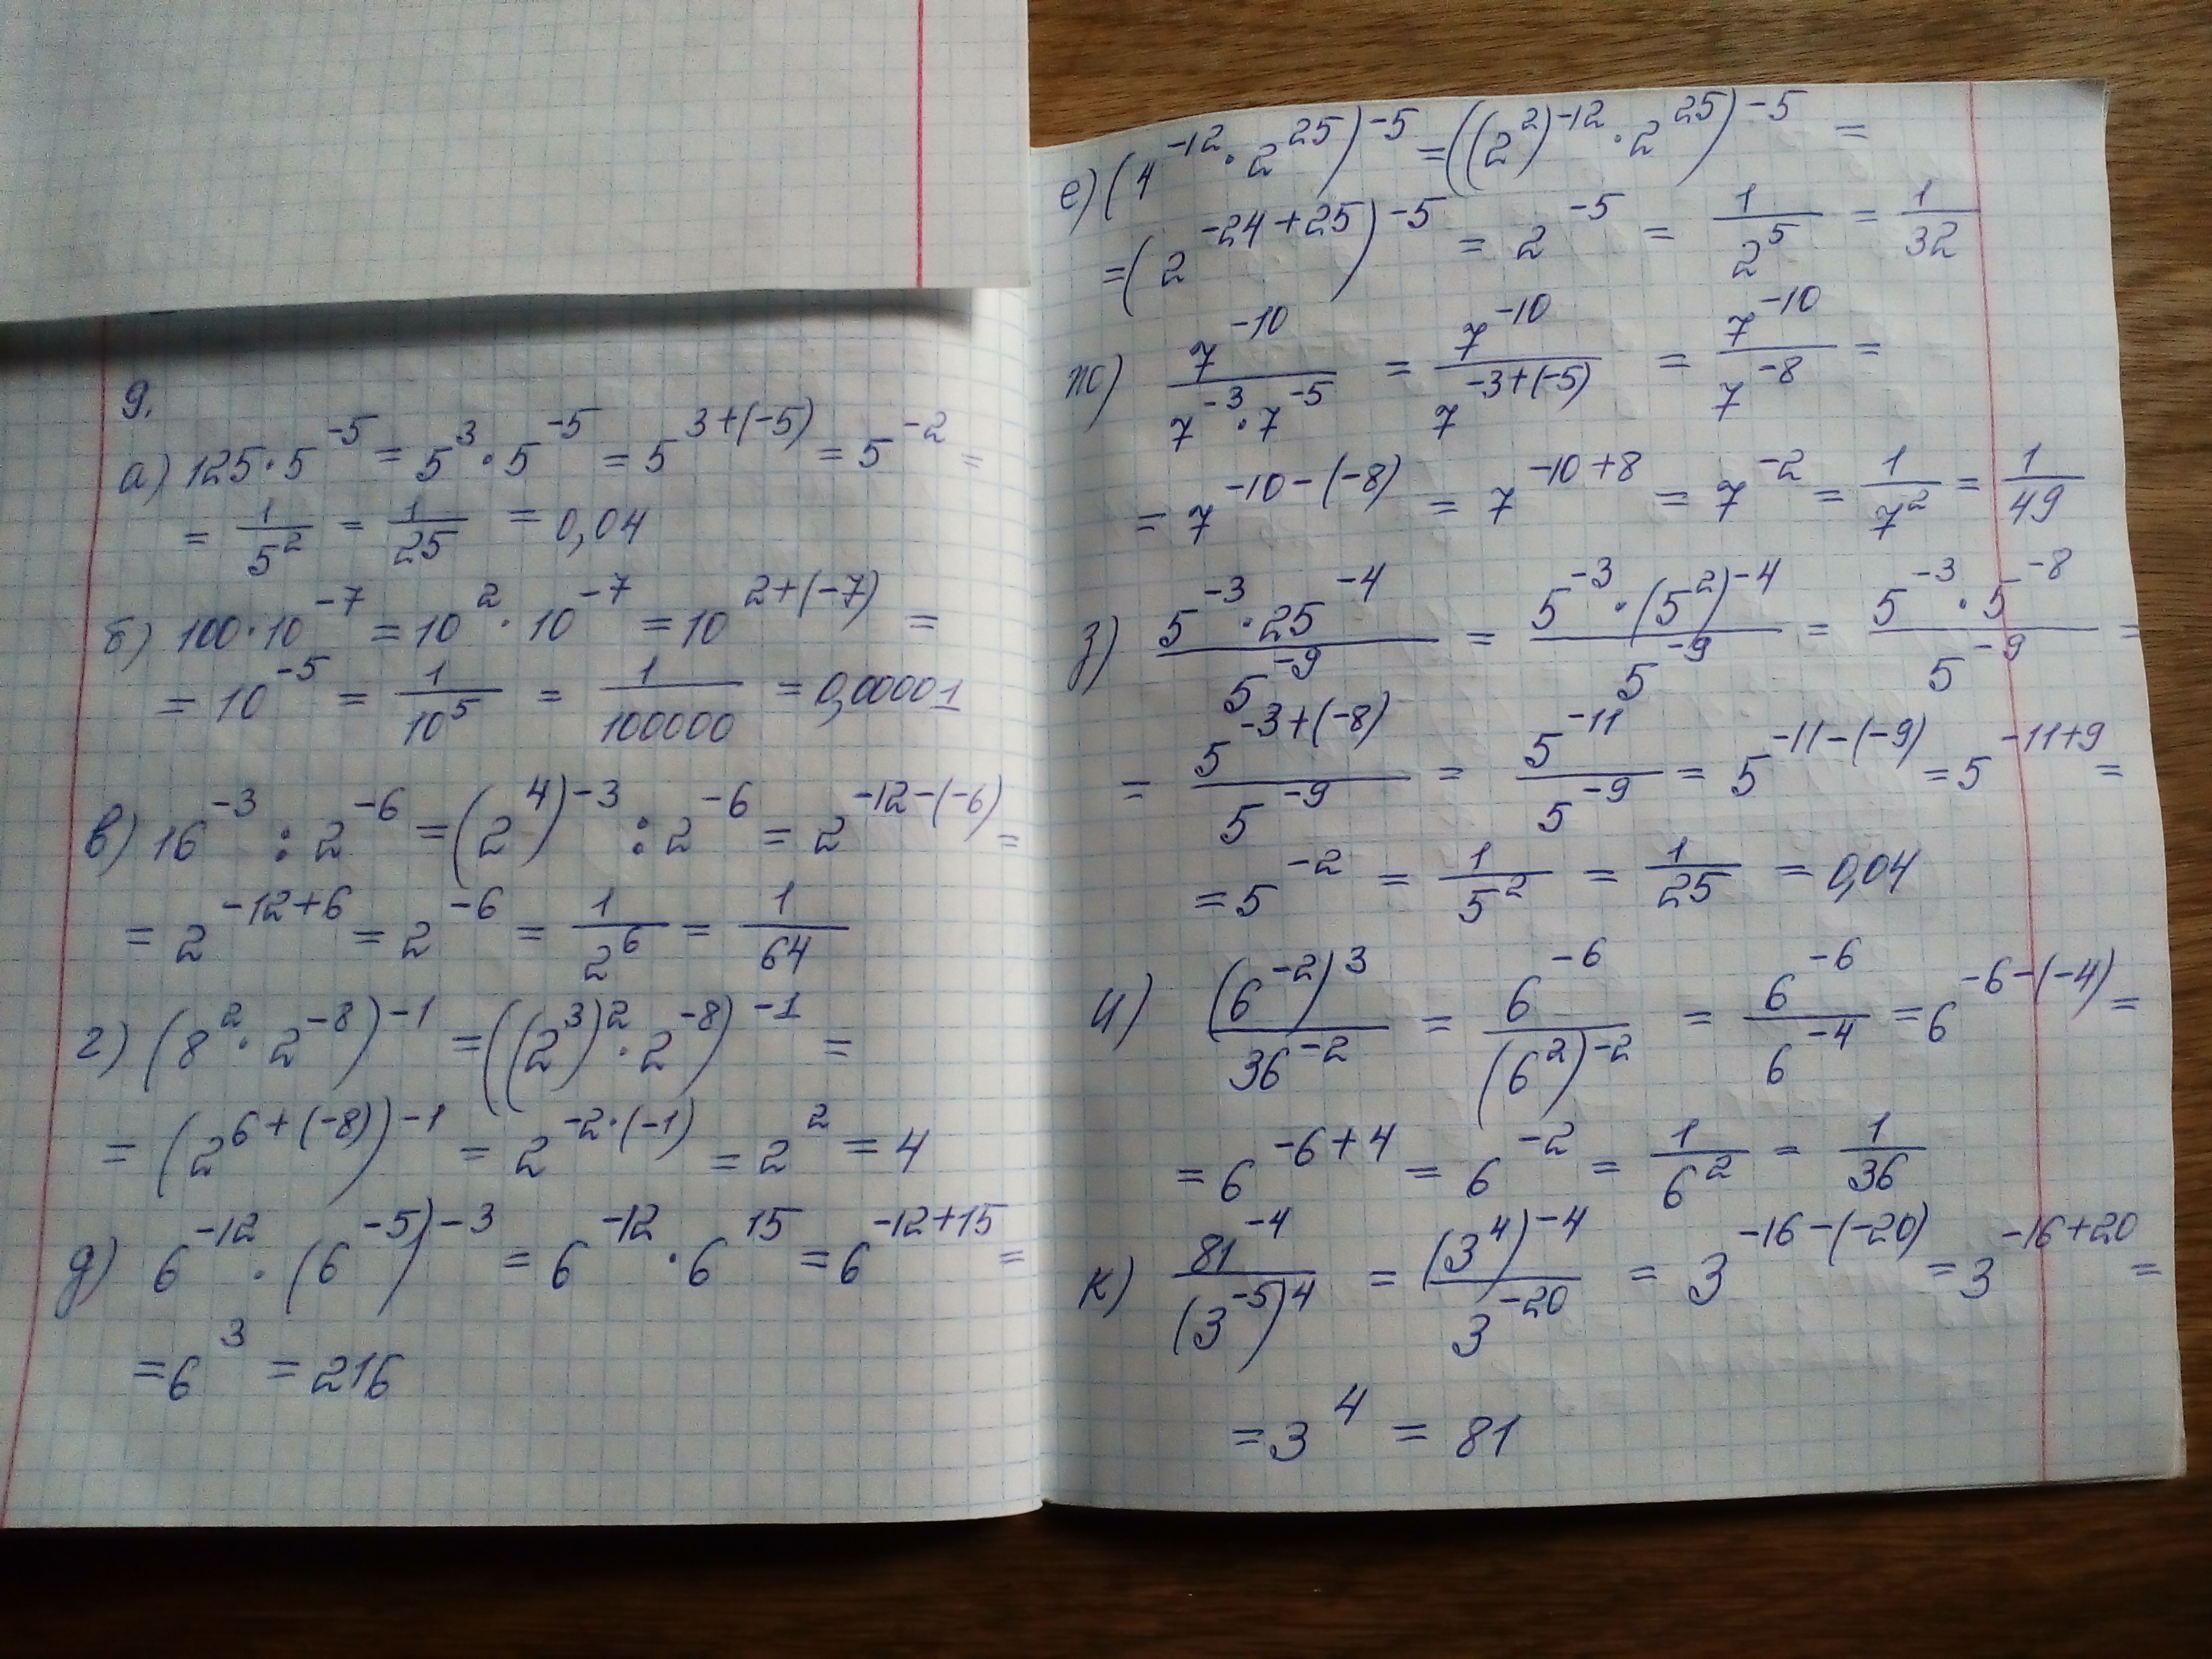 9.
а) 125·5^-5 = 5^3·5^-5 = 5^3+(-5) = 5^-2 =
= 1/5^2 = 1/25 = 0,04
б) 100·10^-7 = 10^2·10^-7 = 10^2+(-7) =
= 10^-5 = 1/10^5 = 1/100000 = 0,00001
в) 16^-3 : 2^-6 = (2^4)^-3 : 2^-6 = 2^-12-(-6) =
= 2^-12+6 = 2^-6 = 1/2^6 = 1/64
г) (8^2·2^-8)^-1 = ((2^3)^2·2^-8)^-1 =
= (2^6+(-8))^-1 = 2^-2·(-1) = 2^2 = 4
д) 6^-12·(6^-5)^-3 = 6^-12·6^15 = 6^-12+15 =
= 6^3 = 216
е) (4^-12·2^25)^-5 = ((2^2)^-12·2^25)^-5 =
= (2^-24+25)^-5 = 2^-5 = 1/2^5 = 1/32
ж) 7^-10/7^-3·7^-5 = 7^-10/7^-3+(-5) = 7^-10/7^-8 =
= 7^-10-(-8) = 7^-10+8 = 7^-2 = 1/7^2 = 1/49
з) 5^-3·25^-4/5^-9 = 5^-3·(5^2)^-4/5^-9 = 5^-3·5^-8/5^-9 =
= 5^-3+(-8)/5^-9 = 5^-11/5^-9 = 5^-11-(-9) = 5^-11+9 =
= 5^-2 = 1/5^2 = 1/25 = 0,04
и) (6^-2)^3/36^-2 = 6^-6/(6^2)^-2 = 6^-6/6^-4 = 6^-6-(-4) =
= 6^-6+4 = 6^-2 = 1/6^2 = 1/36
к) 81^-4/(3^-5)^4 = (3^4)^-4/3^-20 = 3^-16-(-20) = 3^-16+20 =
= 3^4 = 81